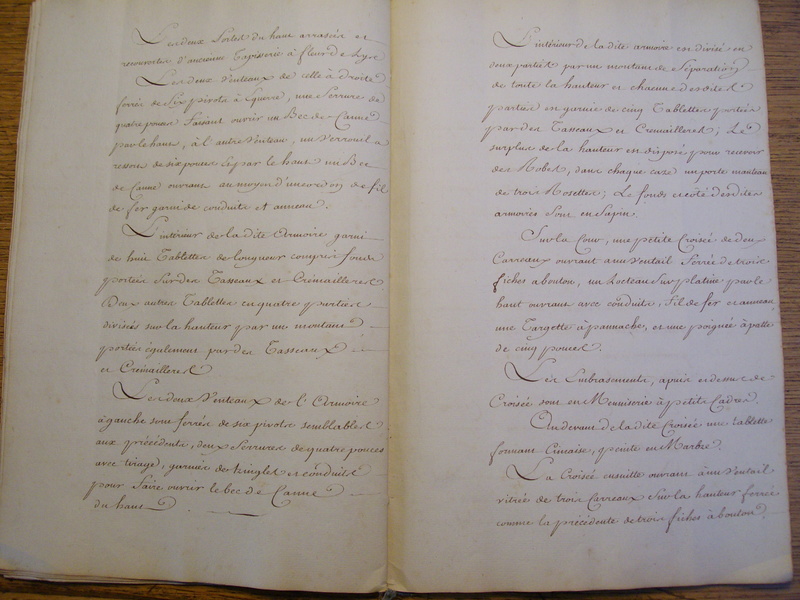 Les deux Portes du haut arrasées et
recouvertes d'ancienne Tapisserie à fleur de Lys
Les deux Venteaux de celle à droite
ferrée de Six pivots à Equerre, une Serrure de
quatre pouces faisant ouvrir un Bec de Canne
par le haut, à l'autre Venteau, un Verrouil à
ressort de six pouces et par le haut un Bec
de Canne ouvrant au moyen d'un cordon de fil
de fer garni de conduits et anneau.
L'intérieur de la dite Armoire garni
de huit Tablettes de longueur compris fonds
portées Sur des Tasseaux et Crémailleres
Deux autres Tablettes en quatre parties
divisées sur la hauteur par un montant
portées également par des Tasseaux
et Crémailleres
Les deux Venteaux de l'Armoire
à gauche sont ferrés de six pivots semblables
aux précédents, deux Serrures de quatre pouces
avec tirage, garnies de tringles et conduits
pour faire ouvrir le bec de Canne
du haut
L'intérieur de la dite armoire est divisé en
deux parties par un montant de Séparation
de toute la hauteur et chacune desdites
parties est garnie de cinq Tablettes portées
par des Tasseaux et Cremailleres; Le
surplus de la hauteur est disposé pour recevoir
des Robes, dans chaque case un porte manteau
de trois Rosettes; Le fonds et côté desdites
armoires Sont en Sapin.
Sur la Cour, une petite Croisée de deux
Carreaux ouvrant à un Ventail Ferrée de trois
fiches à bouton, un Locteau Sur platine par le
haut ouvrant avec conduits, fil de fer et anneau
une Targette à pannache, et une poignée à patte
de cinq pouces.
Les Embrasements, apuis et dessus de
Croisée sont en Menuiserie à petits Cadres.
Au devant de la dite Croisée une tablette
formant Cimaise, peinte en Marbre.
La Croisée ensuitte ouvrant à un Ventail
vitrée de trois Carreaux Sur la hauteur ferrée
comme la précédente de trois fiches à bouton